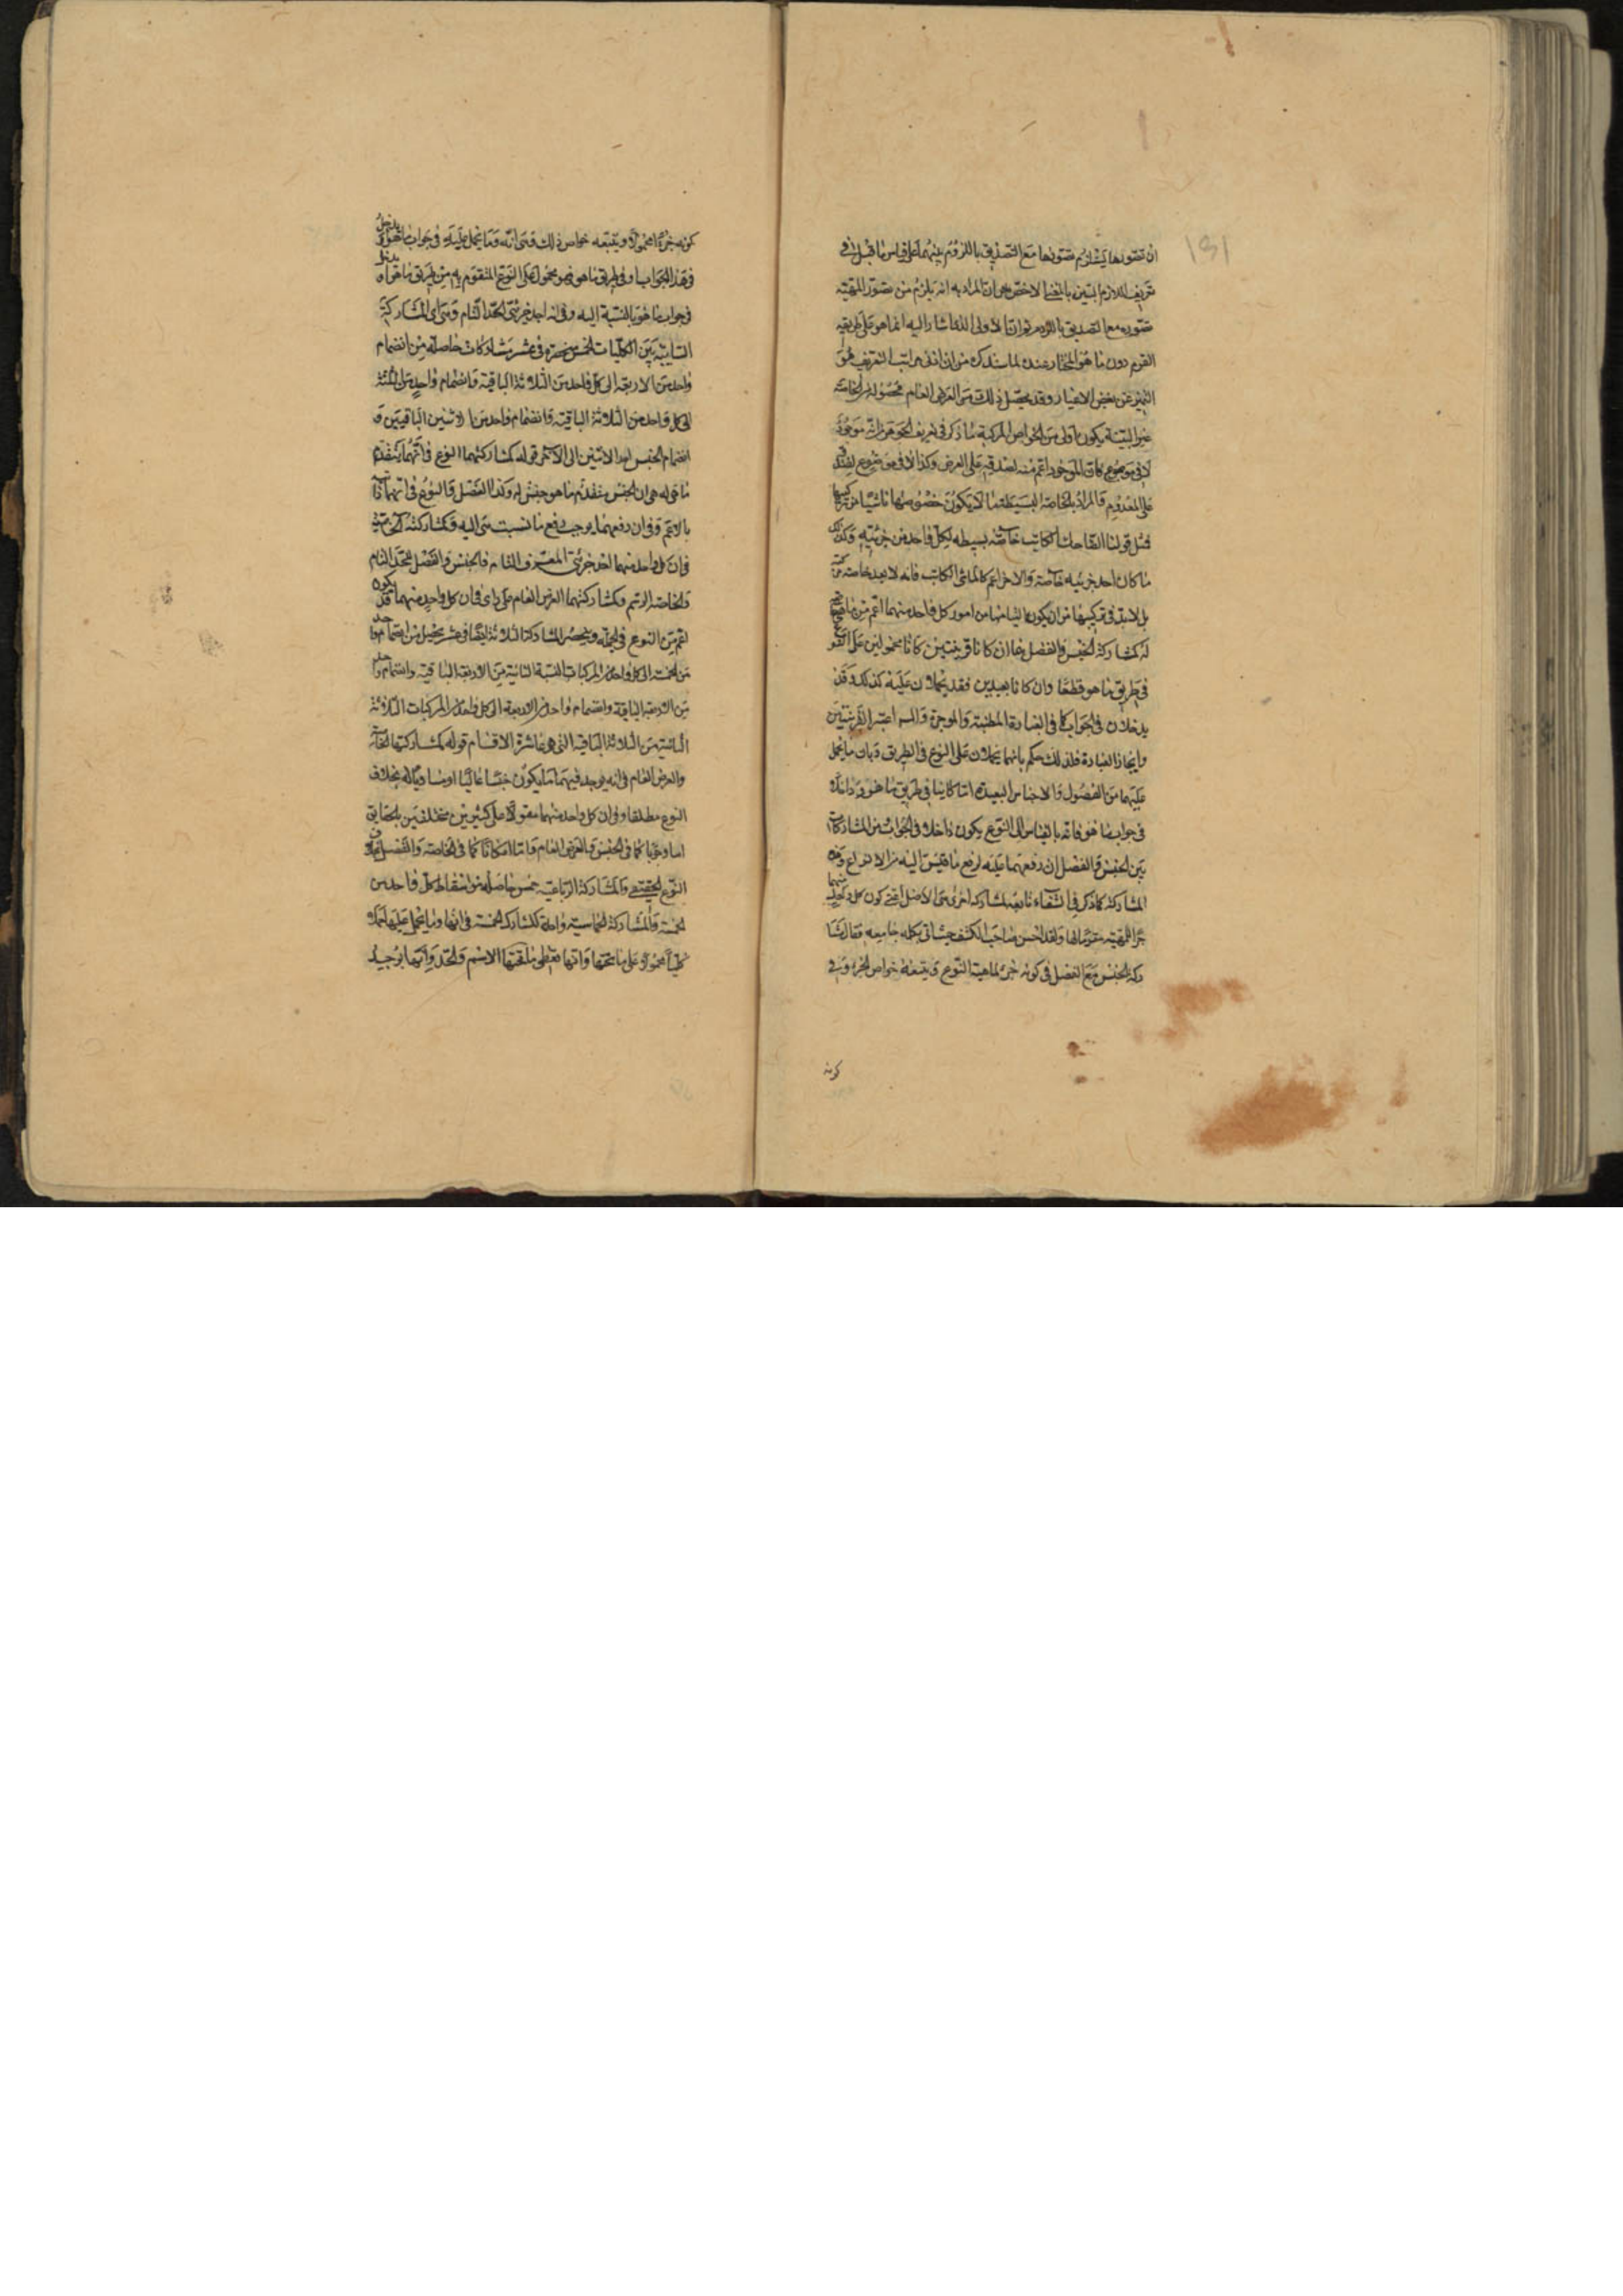 ان تصورها يستلزم تصورها مع التصديق باللزوم بينهما على قياس ما قيل في
تعريف اللازم البين بالمعنى الاخص جوان المراد به انه يلزم من تصور المهية
تصوره مع التصديق باللزوم ثوان الاولى اشار اليه انما هو على طريقه
القوم دون ما هو المختار عنده لما سندكره من ان ادنى مراتب التعريف هو
التميز عن بعض الاغيار وقد يحصل ذلك من العرض العام فحصوله من الخاصة
غير البينة يكون اولى من الخواص المركبة ما ذكر في تعريف الجوهر من انه موجود
لا في موضوع فان الموجود اعم منه لصدقه على العرض وكذا لا في موضوع لصدقه
على المعدوم فالمراد بالخاصة البسيطة ما لا يكون خصوصها ناشيا من تركيبها
فمثل قولنا الضاحك الكاتب خاصة بسيطه لكل واحد من جزئيه وكذلك
ما كان احد جزئيه خاصة والاخر اعم كالماشي الكاتب فانه لا يعد خاصة مركبة
بل لا بد في تركيبها من ان يكون التيامها من امور كل واحد منها اعم مما وضع
له كمشاركة الجنس والفصل فانهما ان كانا قريبين كانا محمولين على النوع
في طريق ما هو قطعا وان كانا بعيدين فقد يحملان عليه كذلك وقد
يدخلان في الجواب كما في العبارة المطنبة والموجزة والم اعتبر القريبين
وايجاز العبارة فلذلك حكم بانهما يحملان على النوع في الطريق وبان ما يحمل
عليهما من الفصول والاجناس البعيدة كاينا في طريق ما هو
في جواب ما هو فانه بالقياس الى النوع يكون داخلا في الجواب من المشاركات
بين الجنس والفصل ان رفعهما علة لرفع ما قيس اليه من الانواع وهذه
المشاركة كما ذكر في الشفاء تابعة لمشاركة اخرى هي الاصل اعني كون كل واحد منهما
جزا للمهية مقوما لها ولقد احسن صاحب الكشف حيث اتى بكلمة جامعه فقال مشا
ركة الجنس مع الفصل في كونه جزء لماهية النوع ويتبعه خواص الجزء وفي
كونه
كونه جزءا محمولا ويتبعه خواص ذلك فمن انه وما يحمل عليه في جواب ما هو يدخل
في هذا الجواب او في طريق ما هو فهو محمول على النوع المتقوم به من طريق ما هو او يدخل
في جواب ما هو بالنسبة اليه وفي انه احد جزئي الحد التام وفي اي المشاركة
الثنائية بين الكليات الخمس منحصرة في عشر مشاركات حاصلة من انضمام
واحد من الاربعة الى كل واحد من الثلاثة الباقية وانضمام واحد من الثلثة
الى كل واحد من الثلاثة الباقية وانضمام واحد من الاثنين الباقيين و
انضمام الجنس احد الاثنين الى الاخر قوله كمشاركتهما النوع في انهما يتقدم
ما هي له هي ان الجنس متقدم ما هو جنس له وكذا الفصل والنوع في انهما
بالاعم وفي ان رفعهما يوجب رفع ما نسبت هي اليه وكمشاركته الخاصة
في ان كل واحد منهما احد جزئي المعرف التام فالجنس والفصل للحد التام
والخاصة للرسم وكمشاركتهما العرض العام على راي في ان كل واحد منهما قد يكون
اعم من النوع في الجملة وينحصر المشاركة الثلاثة ايضا في عشر يحصل من انضمام واحد
من الخمسة الى كل واحد من المركبات الستة الثنائية من الاربعة الباقية وانضمام واحد
من الاربعة الباقية وانضمام واحد من الاربعة الى كل واحد من المركبات الثلاثة
الثنائية من الثلاثة الباقية التي هي عاشرة الاقسام قوله كمشاركتها الخاصة
والعرض العام في انه يوجد فيهما ما يكون جنسا عاليا او مساويا له بخلاف
النوع مطلقا وفي ان كل واحد منهما مقولا على كثيرين مختلفين بالحقايق
اما وجوبا كما في الجنس والعرض العام واما امكانا كما في الخاصة والفصل بخلاف
النوع الحقيقي والمشاركة الرباعية خمس حاصلة من اسقاط كل واحد من
الخمسة والمشاركة الخماسية واحدة كمشاركة الخمسة في انها وما يحمل عليها حملا
كليا محمولا على ما تحتها وانها تعطي ما تحتها الاسم والحد وانها يوجد